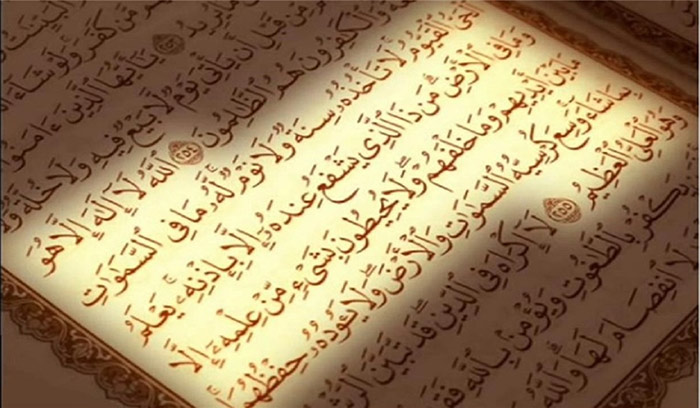 مَّن كَفَرَ وَلَوْ شَآءَ
مَا يُرِيدُ ٢٥٣ يَٰٓأَيُّهَا ٱلَّذِينَ ءَامَنُوٓا۟
مِّن قَبْلِ أَن يَأْتِىَ يَوْمٌ لَّا بَيْعٌ فِيهِ وَلَا خُلَّةٌ
وَٱلْكَٰفِرُونَ هُمُ ٱلظَّٰلِمُونَ ٢٥٤ ٱللَّهُ لَآ إِلَٰهَ إِلَّا هُوَ
ٱلْحَىُّ ٱلْقَيُّومُ لَا تَأْخُذُهُۥ سِنَةٌ وَلَا نَوْمٌ لَّهُۥ مَا فِى ٱلسَّمَٰوَٰتِ
وَمَا فِى ٱلْأَرْضِ مَن ذَا ٱلَّذِى يَشْفَعُ عِندَهُۥٓ إِلَّا بِإِذْنِهِۦ يَعْلَمُ
مَا بَيْنَ أَيْدِيهِمْ وَمَا خَلْفَهُمْ وَلَا يُحِيطُونَ بِشَىْءٍ مِّنْ عِلْمِهِۦٓ إِلَّا
بِمَا شَآءَ وَسِعَ كُرْسِيُّهُ ٱلسَّمَٰوَٰتِ وَٱلْأَرْضَ وَلَا يَـُٔودُهُۥ حِفْظُهُمَا
وَهُوَ ٱلْعَلِىُّ ٱلْعَظِيمُ ٢٥٥ لَآ إِكْرَاهَ فِى ٱلدِّينِ قَد تَّبَيَّنَ
يَكْفُرْ بِٱلطَّٰغُوتِ وَيُؤْمِنۢ بِٱللَّهِ
لَا ٱنفِصَامَ لَهَا وَٱللَّهُ